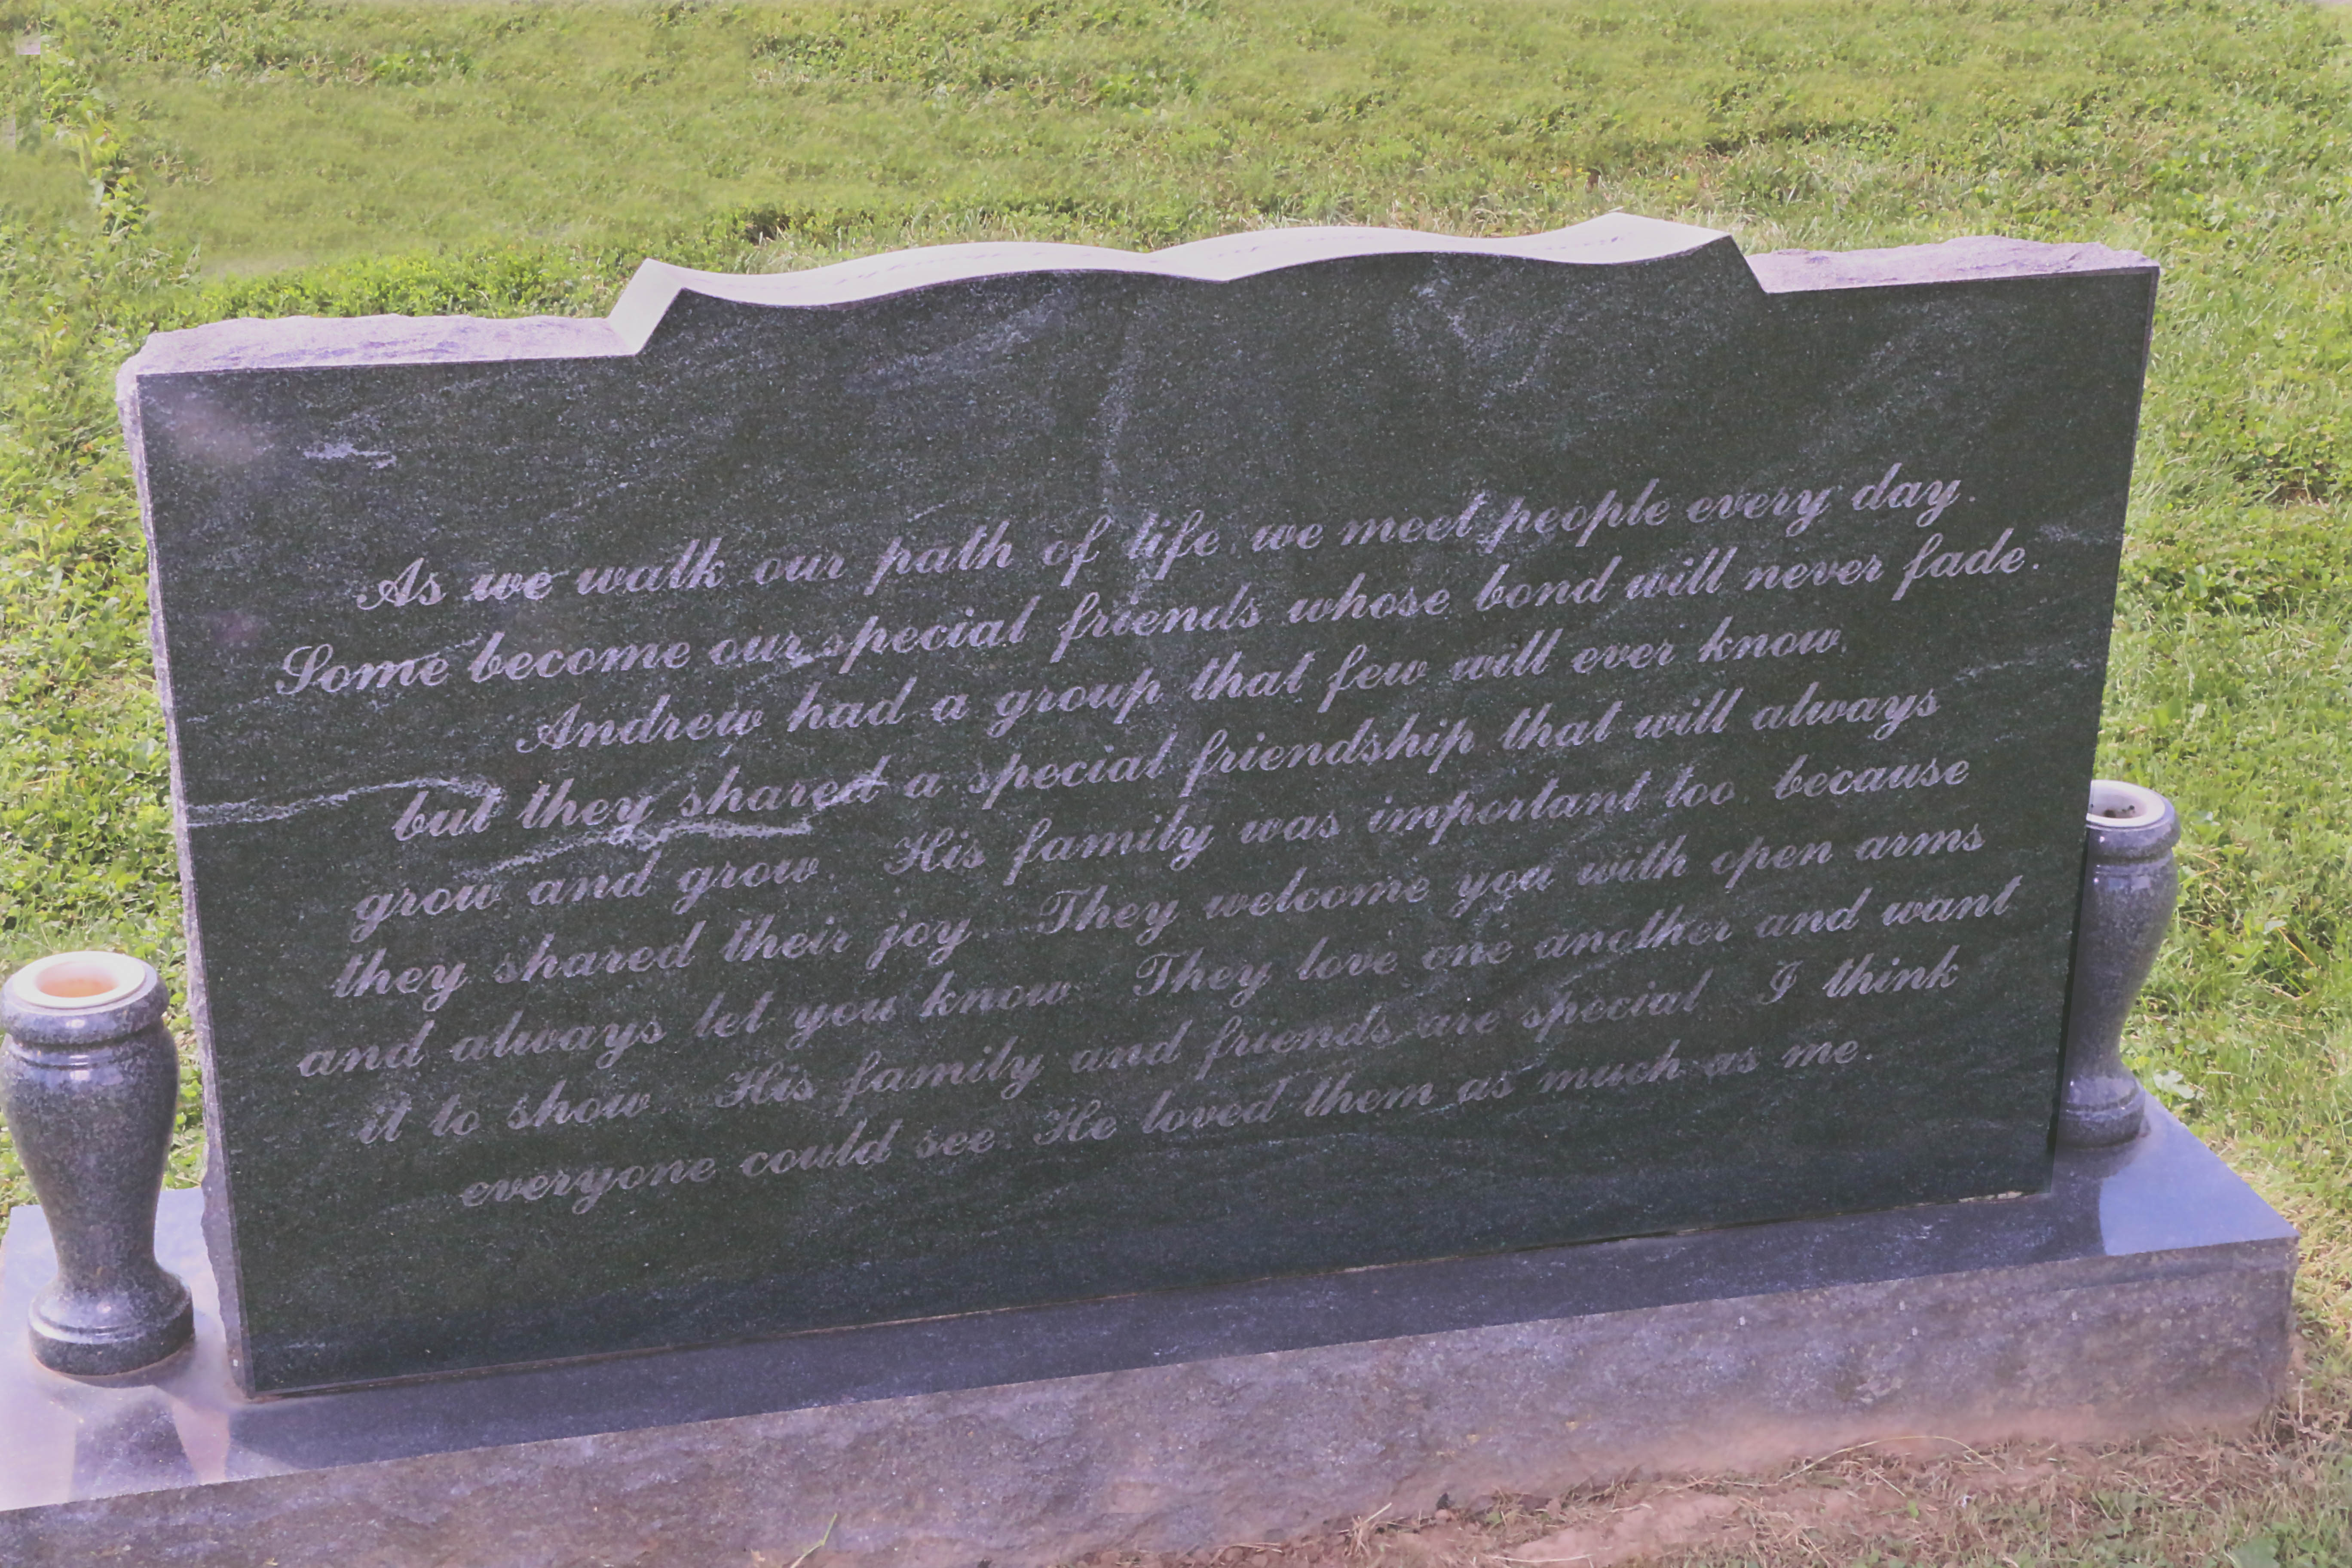 As we walk our path of life, we meet people every day.
Some become our special friends whose bond will never fade.
Andrew had a group that few will ever know,
but they shared a special friendship that will always
grow and grow. His family was important too, because
they shared their joy. They welcome you with open arms
and always let you know. They love one another and want
it to show. His family and friends are special. I think
everyone could see. He loved them as much as me.